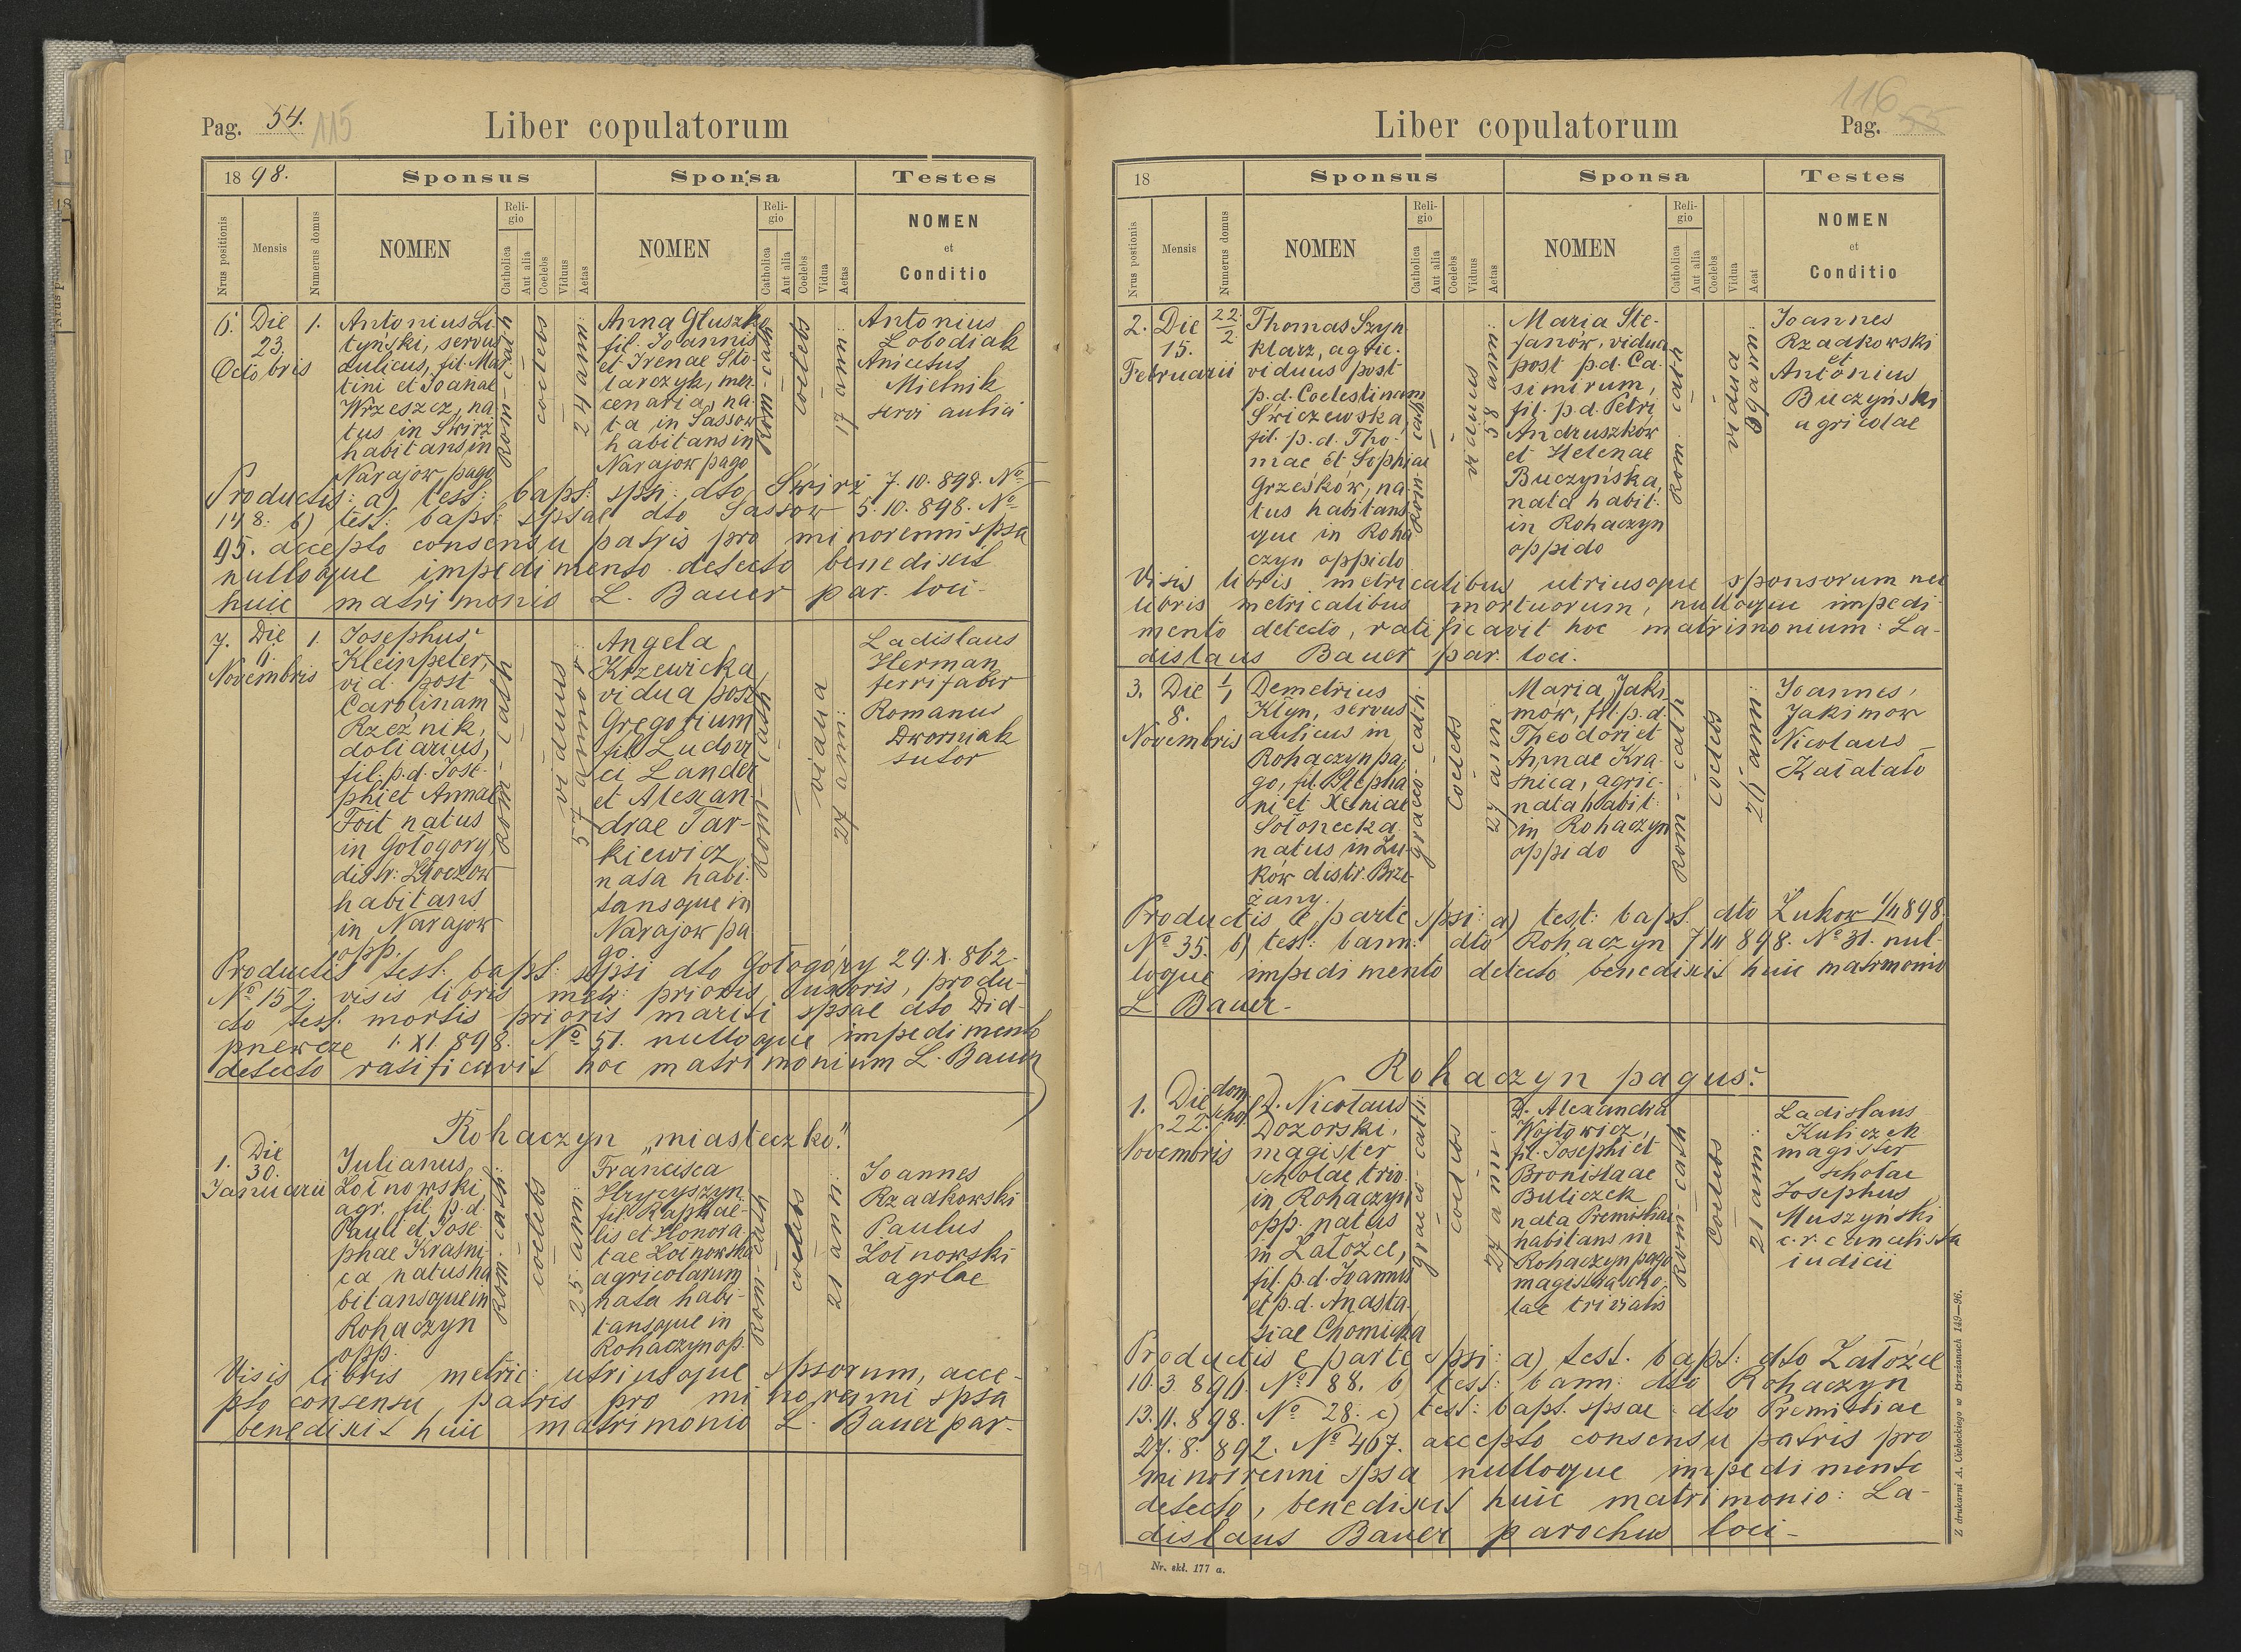 Pag. 54. 115
Liber copulatorum
18 98.
Sponsus
Sponsa
Testes
Nrus positionis
Mensis
Numerus domus
NOMEN
Religio
Catholica
Aut alia
Coelebs
Viduus
Aetas
NOMEN
Religio
Catholica
Aut alia
Coelebs
Vidua
Aetas
NOMEN
et
Conditio
6. Die
23.
Octobris
1.
Antonius Li-
tyński, servus
aulicus, fil. Mar
tini et Joanae
Wrzeszcz, na
tus in Świrz
habitans in
Narajow pago
Rom-cath
coelebs
24 ann:
Anna Głuszko
fil. Joannis
et Irenae Sto-
larczyk, mer
cenaria, na-
ta in Sassow
habitans in
Narajow pago
Rom-cath
coelebs
17 ann:
Antonius
Łobodiak
Anicetus
Mielnik
servi aulici
Productis: a) test: bapt: spsi: dto Świrz 7.10.898. No
148. b) test: bapt: spsae dto Sassow 5.10.898. No
95. accepto consensu patris pro minorenni spsa
nulloque impedimento detecto benedixit
huic matrimonio L. Bauer par. loci-
7. Die
6.
Novembris
1.
Josephus
Kleinpeter,
vid. post
Carolinam
Rzeźnik,
doliarius,
fil. p.d. Jose-
phi et Annae
Foit natus
in Gołogory
distr: Złoczow
habitans
in Narajow
opp.
Rom-cath
viduus
57 annor:
Angela
Krzewicka
vidua post
Gregorium
fil. Ludovi
ci Lander
et Alexan-
drae Tar-
kiewicz,
nata habi-
tansque in
Narajow pa
go.
Rom-cath
vidua
27 ann:
Ladislaus
Herman
ferrifaber
Romanus
Dworniak
sutor
Productis test. bapt: spsi dto Gołogóry 29.X.862.
No 152. visis libris metr: prioris uxoris, produ-
cto test. mortis prioris mariti spsae dto Did-
pnewcze 1.XI.898. No 51. nulloque impedimento
detecto ratificavit hoc matrimonium L. Bauer
Rohaczyn "miasteczko."
1. Die
30.
Januarii
Julianus
Żołnowski,
agr. fil. p.d.
Pauli et Jose-
phae Kraśni
ca natus ha
bitansque in
Rohaczyn
opp.
Rom-cath:
coelebs
25 ann:
Francisca
Hrycyszyn
fil. Raphae-
lis et Honora
tae Żołnowska
agricolarum
nata habi-
tansque in
Rohaczyn op.
Rom-cath
coelebs
21 ann:
Joannes
Rządkowski
Paulus
Żołnowski
agrlae
Visis libris metric: utriusque spsorum, acce-
pto consensu patris pro minorenni spsa
benedixit huic matrimonio L. Bauer par-
116
Liber copulatorum
Pag. 55
18
Sponsus
Sponsa
Testes
Nrus postionis
Mensis
Numerus domus
NOMEN
Religio
Catholica
Aut alia
Coelebs
Viduus
Aetas
NOMEN
Religio
Catholica
Aut alia
Coelebs
Vidua
Aeat
NOMEN
et
Conditio
2. Die
15.
Februarii
22/2
Thomas Szyn
klarz, agric.
viduus post
p.d. Coelestinam
Świczewska,
fil. p.d. Tho-
mae et Sophiae
Grześków, na-
tus habitans
que in Roha
czyn oppido
Rom-cath
viduus
58 ann:
Maria Ste-
fanów, vidua
post p.d. Ca-
simirum,
fil. p.d. Petri
Andruszków
et Helenae
Buczyńska,
nata habit:
in Rohaczyn
oppido
Rom-cath
vidua
Joannes
Rządkowski
et
Antonius
Buczyński
agricolae
Visis libris metricalibus utriusque sponsorum nec
libris metricalibus mortuorum, nulloque impedi-
mento detecto, ratificavit hoc matrimonium: La-
dislaus Bauer par. loci.
3. Die
8.
Novembris
1/1
Demetrius
Kłyn, servus
aulicus in
Rohaczyn pa-
go, fil. Stepha
ni et Xeniae
Sołonecka
natus in Żu-
ków distr. Brze-
żany.
graeco-cath
coelebs
Maria Jaki
mów, fil. p.d.
Theodori et
Annae Kra-
śnica, agric-
nata habit:
in Rohaczyn
oppido
Rom-cath
coelebs
Joannes
Jakimow
Nicolaus
Kałatało
Productis e parte spsi: a) test: bapt. dto Żukow 1/11 898.
No 35. b) test: bann: dto Rohaczyn 7/11 898. No 31. nul-
loque impedimento detecto benedixit huic matrmonio
L Bauer-
Rohaczyn pagus.
1. Die
22.
Novembris
dom.
schol
D. Nicolaus
Dozorski,
magister
scholae triv.
in Rohaczyn
opp. natus
in Załoźce,
fil. p.d. Joannis
et p.d. Anasta-
siae Chomicka
graeco-cath:
coelebs
D. Alexandra
Wojtowicz,
fil. Josephi et
Bronislaae
Buliczek
nata Premisliae
habitans in
Rohaczyn pago
magistra scho-
lae trivialis
Rom cath
coelebs
Ladislaus
Kuliczek
magister
scholae
Josephus
Muszyński
c.r. cancelista
iudicii
Productis e parte spsi: a) test. bapt: dto Załoźce
10.3.890. No 88. b) test: bann: dto Rohaczyn
13.11.898. No 28. c) test: bapt. spsae: dto Premisliae
27.8.892. No 467. accepto consensu patris pro
minorenni spsa nulloque impedimento
detecto, benedixit huic matrimonio: La-
dislaus Bauer parochus loci-
Nr. skł. 177 a.
Z drukarni A. Cichockiego w Brzeżanach 149—96.